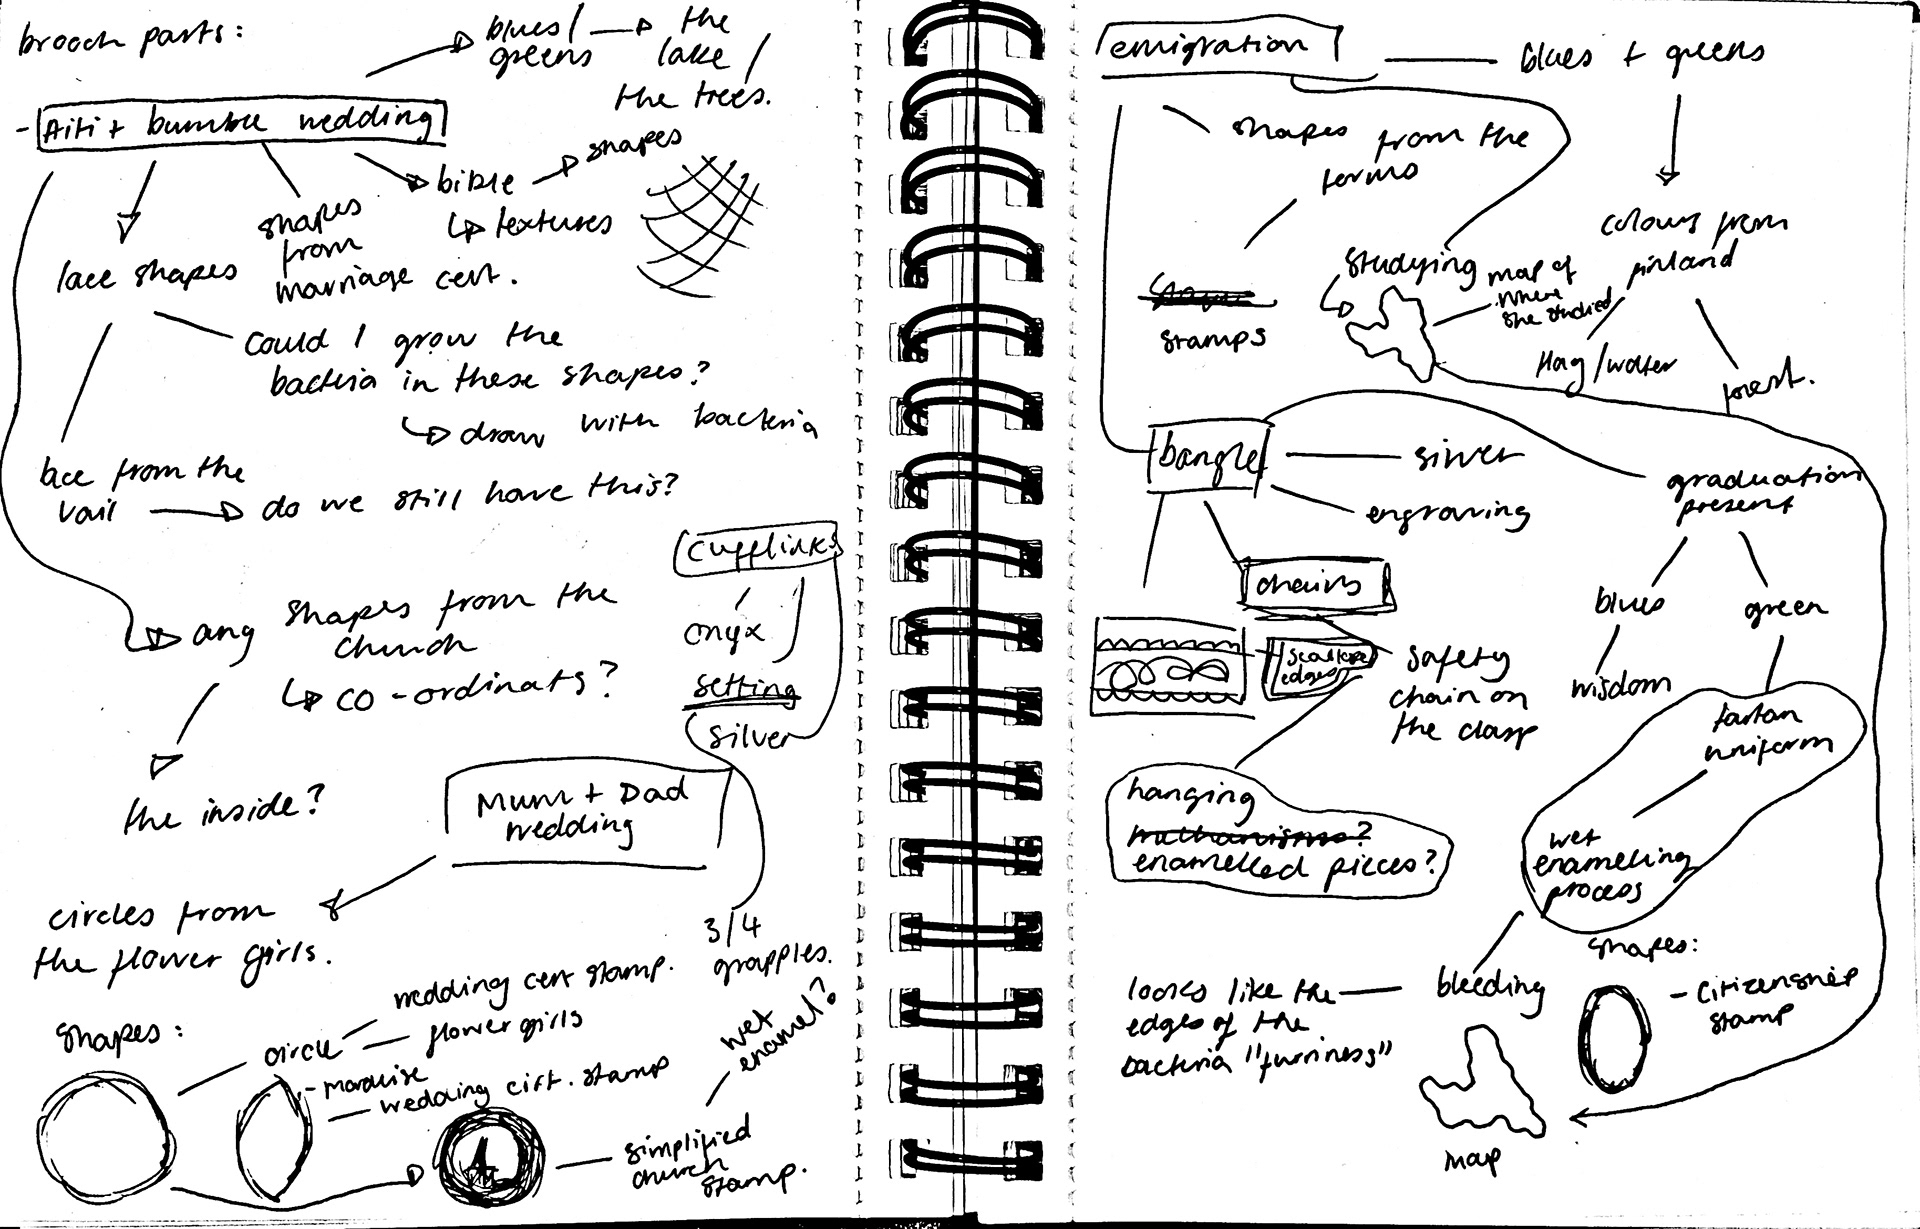 brooch parts:
blues/
greens
the
lake/
the trees.
- Aiti + bumble wedding
shapes
bible
textures
lace shapes
shapes
from
marriage cert.
could I grow the
bacteria in these shapes?
draw with bacteria
lace from the
vail
do we still have this?
cufflinks
onyx
setting
silver
any shapes from the
church
co-ordinats?
the inside?
Mum + Dad
wedding
circles from
the flower girls.
3/4
grapples.
shapes:
circle
wedding cert stamp.
flower girls
- marquise
wedding cirt. stamp
wet
enamel?
simplified
church
stamp.
emigration
blues + greens
shapes from the
forms
stamps
studying
map of
where
she studied
colours from
finland
flag/water
forest.
bangle
silver
engraving
graduation
present
chains
scallop
edges
safety
chain on
the clasp
blues
green
wisdom
tartan
uniform
hanging
mechanisms?
enamelled pieces?
wet
enamelling
process
looks like the
edges of the
bacteria "furriness"
bleeding
shapes:
- citizenship
stamp
map